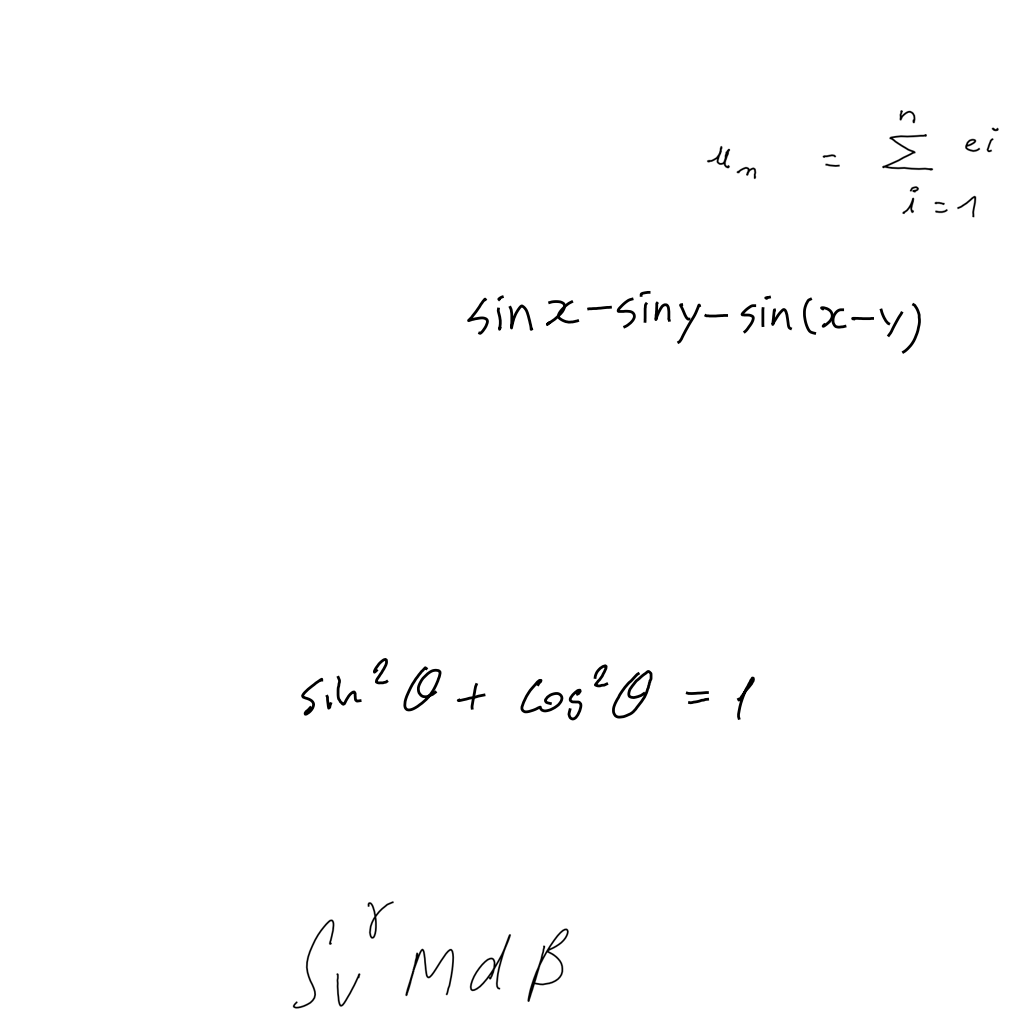 u_n = \sum_{i=1}^{n} e i
sin x - sin y - sin(x - y)
sin^2 θ + cos^2 θ = 1
\int_{v}^{γ} M d β